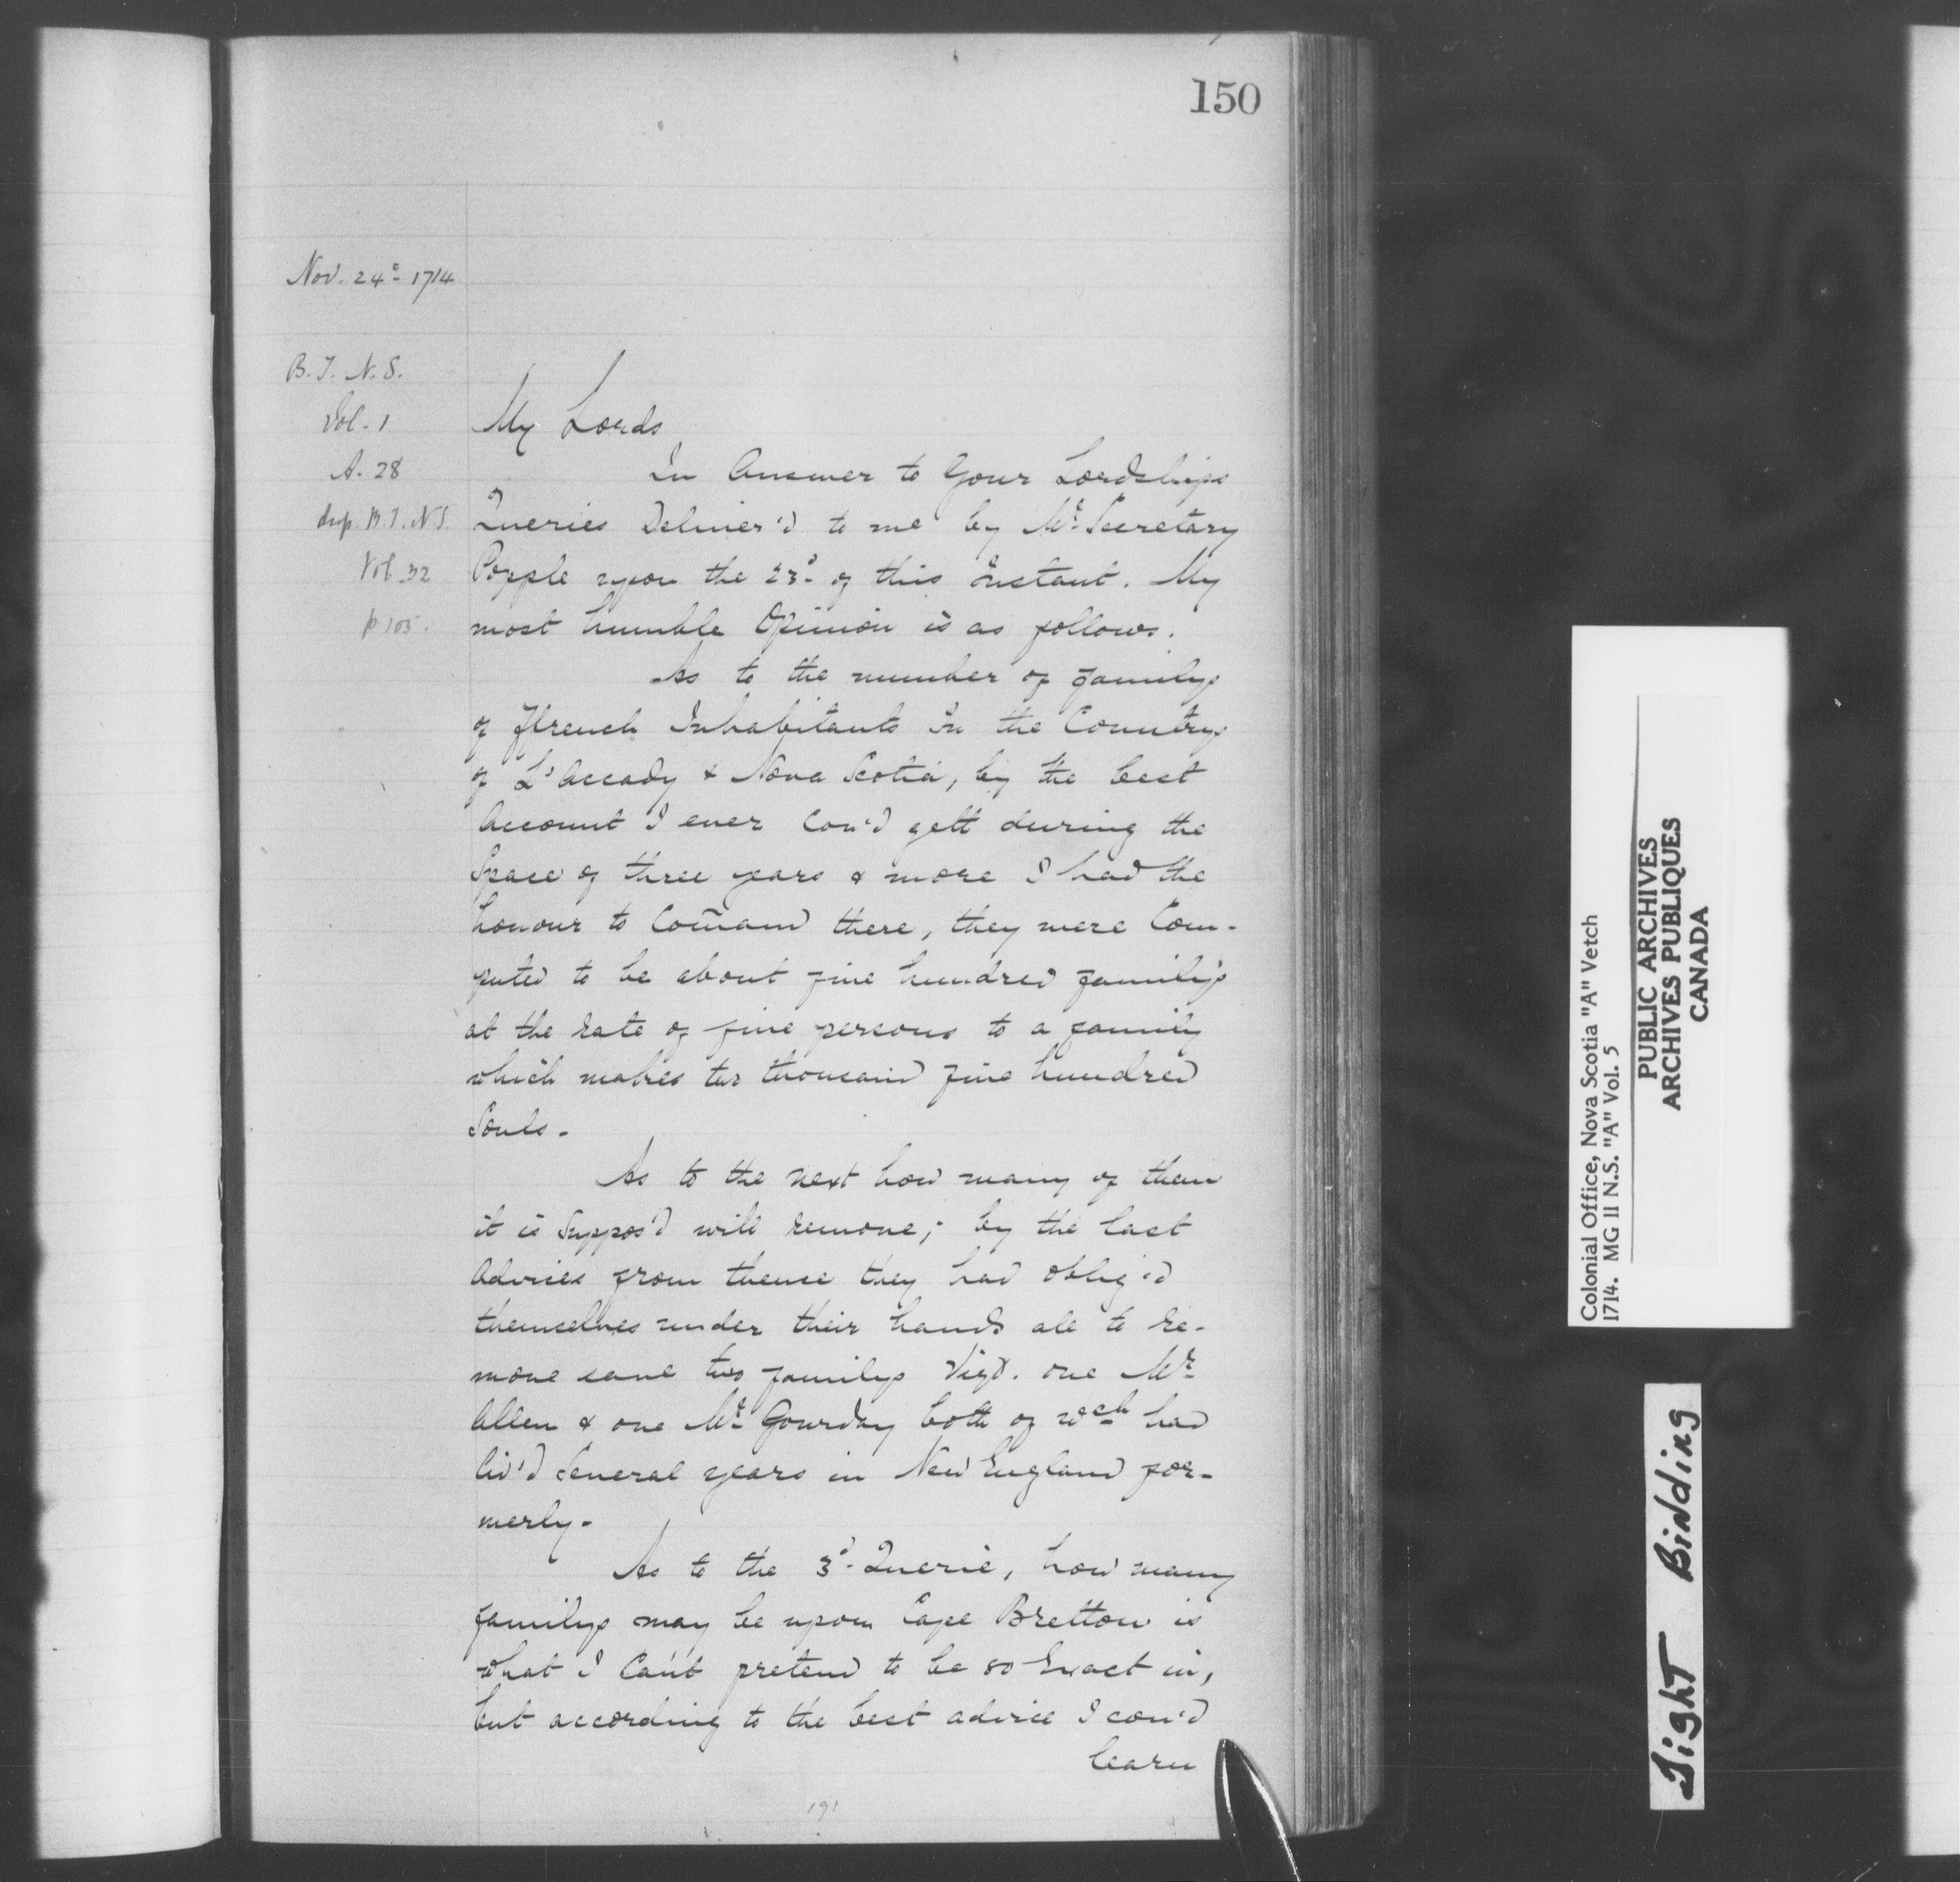 150
Nov. 24th 1714
B. T. N. S.
Vol. 1
A. 28
dup. B. T. N. S.
Vol. 32
p 105.
My Lords
In Answer to Your Lordships
Queries Deliver'd to me by Mr. Secretary
Popple upon the 23d of this Instant. My
most humble Opinion is as follows.
As to the number of familys
of ffrench Inhabitants In the Countrys
of L'Accady & Nova Scotia, by the best
Account I ever Cou'd gett during the
Space of three years & more I had the
honour to Com̃and there, they were Com-
puted to be about five hundred familys
at the Rate of five persons to a family
which makes two thousand five hundred
Souls.
As to the next how many of them
it is Suppos'd will Remove; by the last
Advices from thence they had oblig'd
themselves under their hands all to Re-
move save two familys Vizt. one Mr
Allen & one Mr. Gourday both of wch had
liv'd Several years in New England for-
merly.
As to the 3d Querie, how many
familys may be upon Cape Bretton is
what I Can't pretend to be so Exact in,
but according to the best advice I cou'd
learn
191
Colonial Office, Nova Scotia "A" Vetch
1714. MG II N.S. "A" Vol. 5
PUBLIC ARCHIVES
ARCHIVES PUBLIQUES
CANADA
Tight Binding